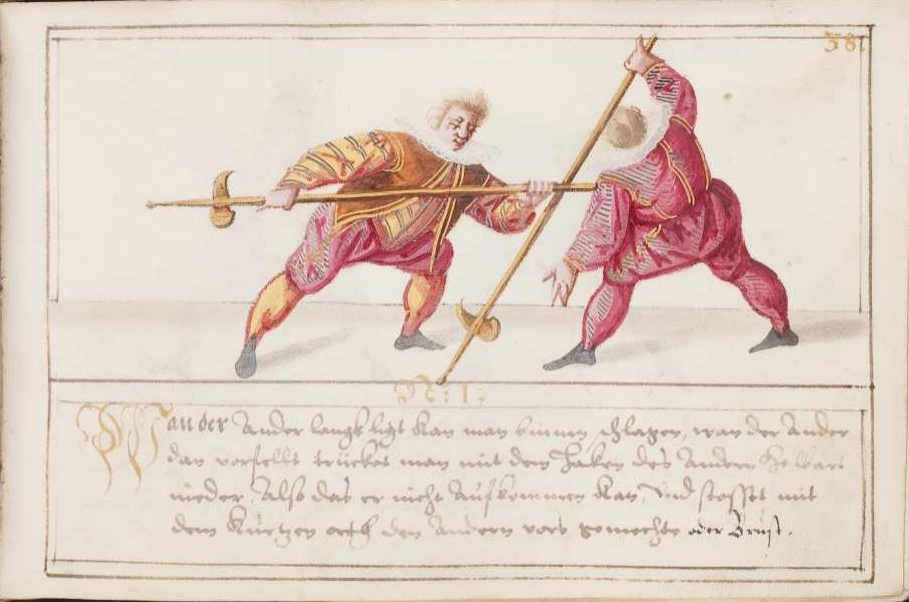 38.
N: 1.
Wan der Ander langk ligt kan man binnen schlagen, wan der Ander
dan vorfellt trücket man mit dem Haken des Andern Helbart
nieder, Also das er nicht Aufkommen kan, Und stosset mit
dem kurtzen orth den Andern vors gemechte oder Brust.